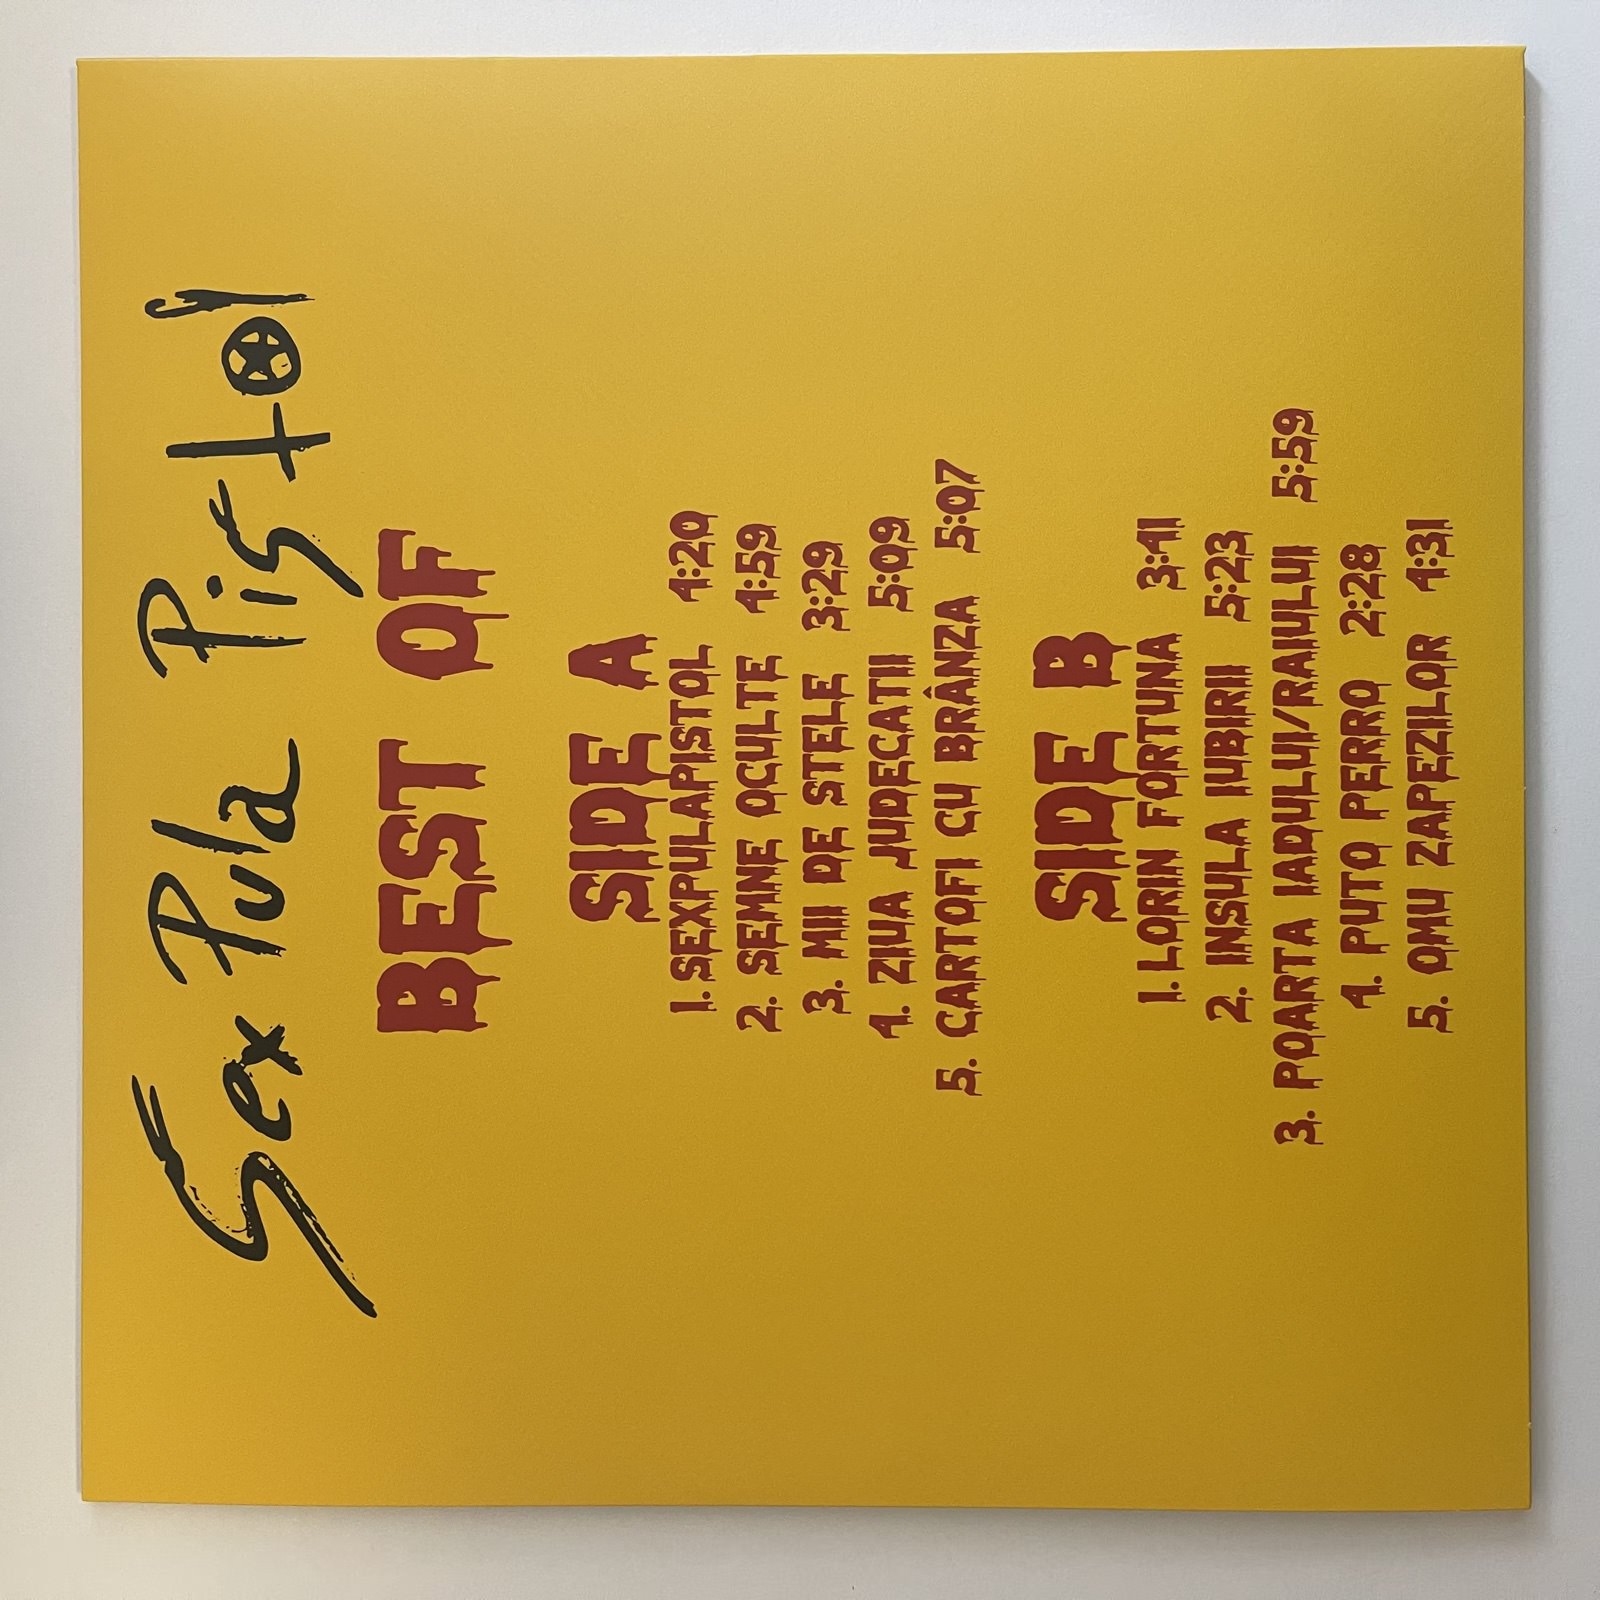 Sex Pula Pistol
BEST OF
SIDE A
1. SEXPULAPISTOL 4:20
2. SEMNE OCULTE 4:59
3. MII DE STELE 3:29
4. ZIUA JUDECATII 5:09
5. CARTOFI CU BRÂNZA 5:07
SIDE B
1. LORIN FORTUNA 3:41
2. INSULA IUBIRII 5:23
3. POARTA IADULUI/RAIULUI 5:59
4. PUTO PERRO 2:28
5. OMU ZAPEZILOR 4:31